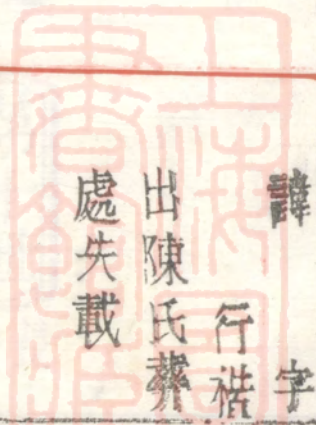 諱
字
行禚
出陳氏葬
處失載